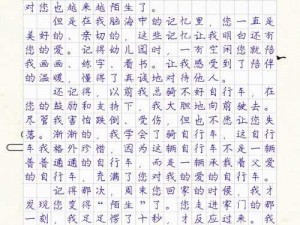 对您也越来越陌生了。
但是在我脑海中的记忆里，您一直是
美好的、亲切的，这些记忆让我明白还有
您的爱。记得幼儿园时，一有空闲您就陪
我画画、练字、看书。让我感受到了陪伴
的温暖，懂得了真诚地对待他人。
还记得，以前我总骑不好自行车，在
您的鼓励和支持下，我大胆地向前驶去。
尽管我害怕跌倒、受伤，但也不想让您失
落。渐渐的，我学会了骑自行车，这自行
车我格外珍惜，因为这辆自行车不是一辆
普普通通的自行车，而是一辆承载着父爱
的自行车，充满了您对我的爱与期望。
记得那次，周末您回家的时候，我才
发现您变得“陌生”了。您走进家门的那
一刻，我足足愣了十秒，才反应过来。我